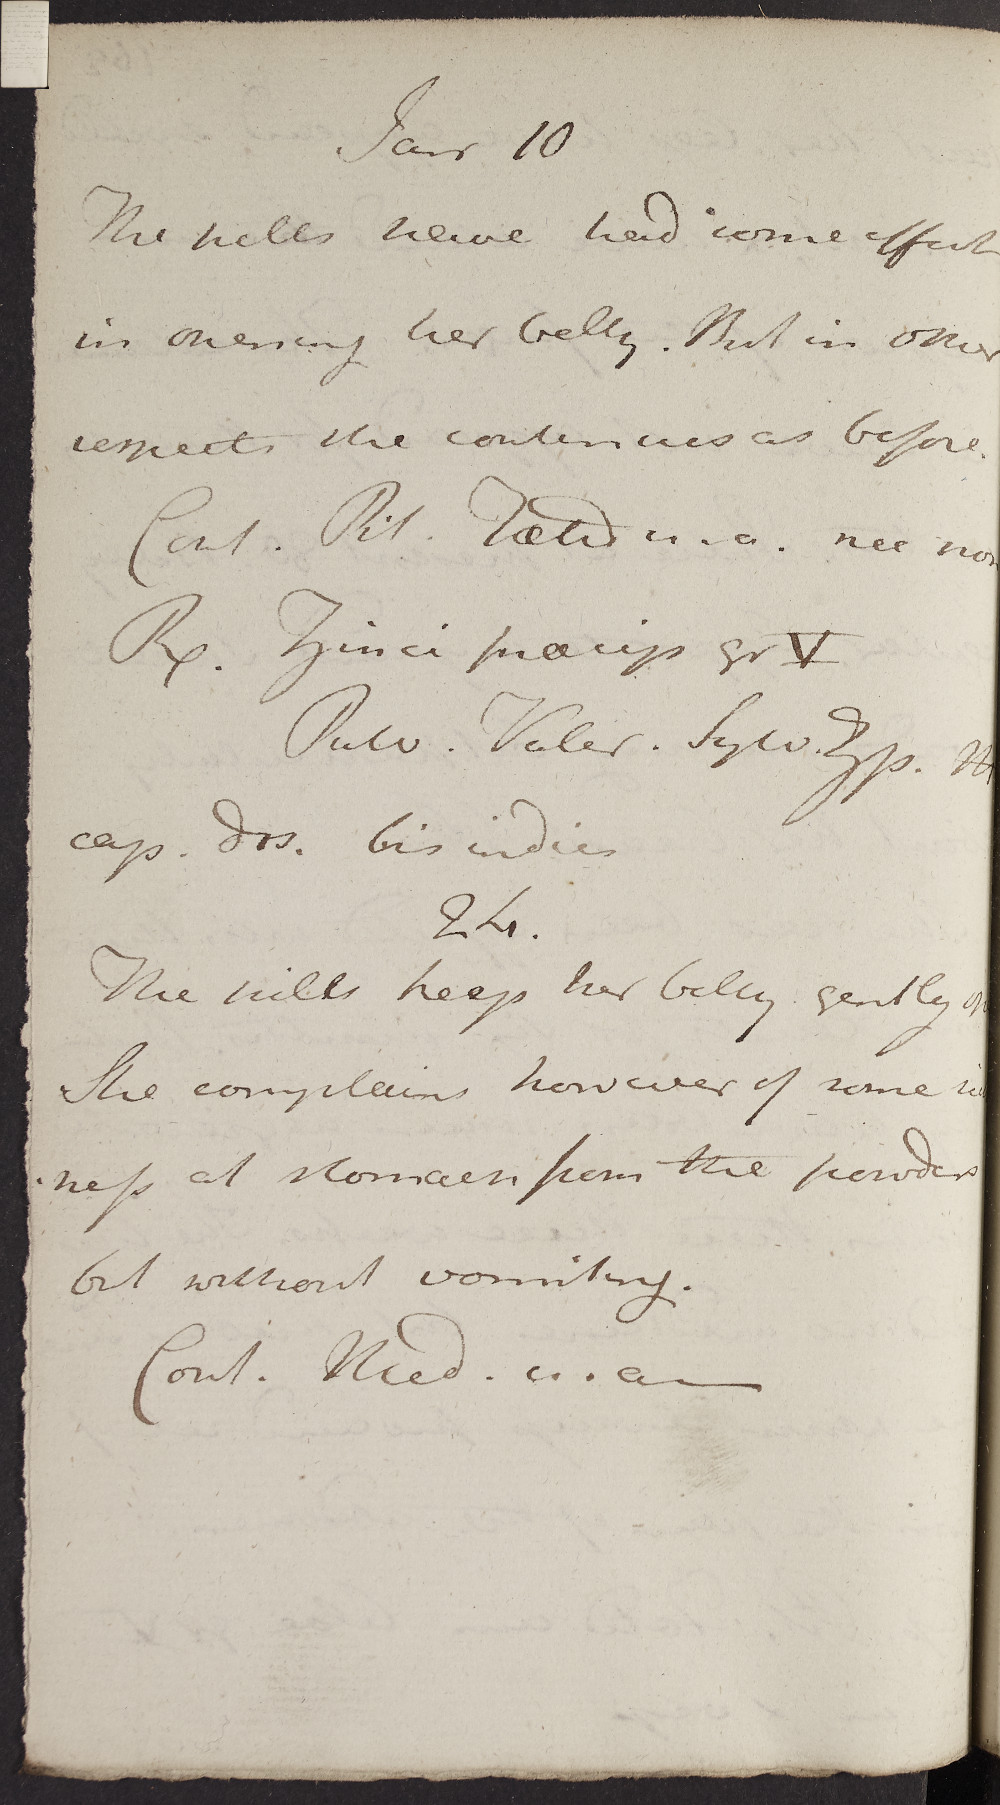 Janr 10
The pills have had some effect
in opening her belly. But in other
respects she continues as before.
Cont. Pil. Fœtid u. a. nec non
Rx. Zinci præcip gr V
Pulv. Valer. Sylv. ʒſs. M
cap. dos. bis indies
24.
The pills keep her belly gently op
She complains however of some sick
ness at stomach from the powders
but without vomiting.
Cont. Med. u. a